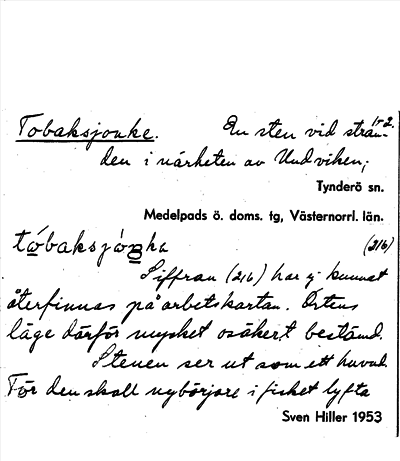 Tobaksjonke. En sten vid stran- 1r2.
den i närheten av Undviken;
Tynderö sn.
Medelpads ö. doms. tg, Västernorrl. län.
(216)
Siffran (216) har ej kunnat
återfinnas på arbetskartan. Ortens
läge därför mycket osäkert bestämd.
Stenen ser ut som ett huvud.
För den skall nybörjare i fisket lyfta
Sven Hiller 1953